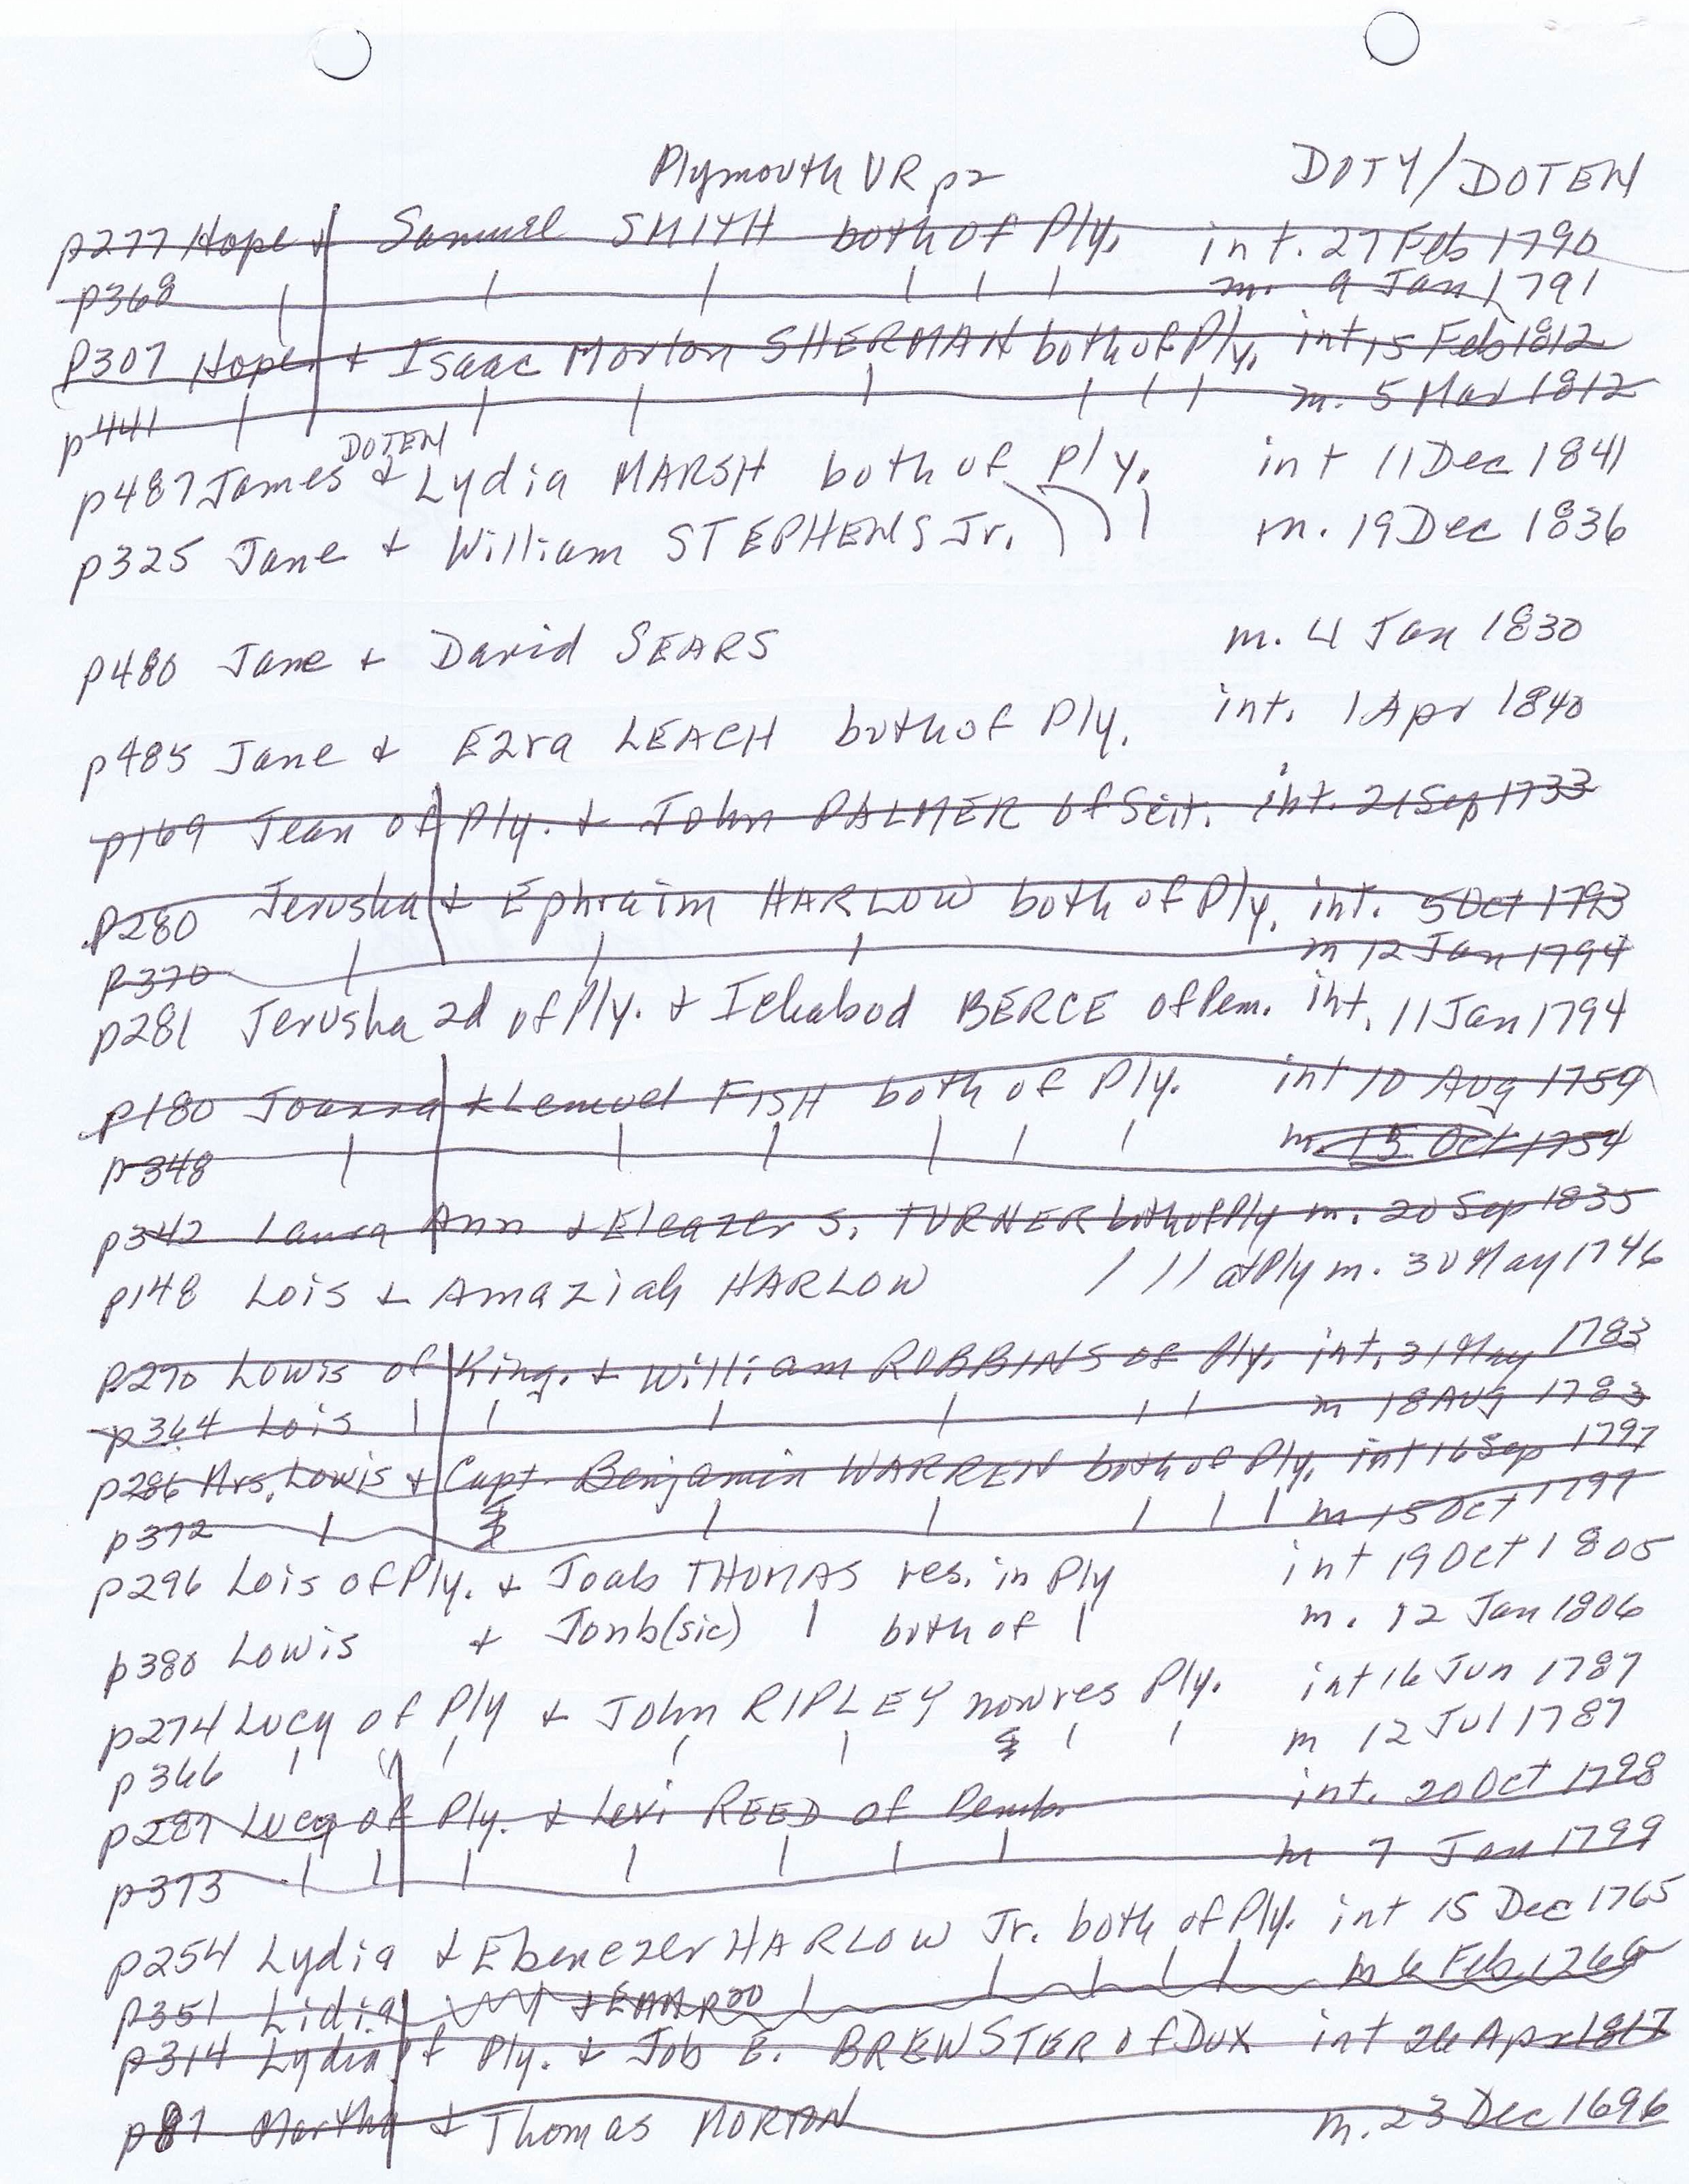 Plymouth VR p2 DOTY/DOTEN
p277 Hope + Samuel SMITH both of Ply. int. 27 Feb 1790
p368 | | | | | | m. 9 Jan 1791
p307 Hope + Isaac Morton SHERMAN both of Ply. int. 15 Feb 1812
p441 | | | | | | | m. 5 Mar 1812
DOTEN
p487 James + Lydia MARSH both of Ply. int 11 Dec 1841
p325 Jane + William STEPHENS Jr. ) ) | m. 19 Dec 1836
p480 Jane + David SEARS m. 4 Jan 1830
p485 Jane + Ezra LEACH both of Ply. int. 1 Apr 1840
p169 Jean of Ply. + John PALMER of Scit. int. 21 Sep 1733
p280 Jerusha + Ephraim HARLOW both of Ply. int. 5 Oct 1793
p370 | | | m 12 Jan 1794
p281 Jerusha 2d of Ply. + Ichabod BERCE of Pem. int. 11 Jan 1794
p180 Joanna + Lemuel FISH both of Ply. int 10 Aug 1759
p348 | | | | | | m. 15 Oct 1754
p342 Laura Ann + Eleazer S. TURNER both of Ply m. 20 Sep 1835
p148 Lois + Amaziah HARLOW / / / at Ply m. 30 May 1746
p270 Lowis of King. + William ROBBINS of Ply. int. 31 May 1783
p364 Lois | | | | | | m 18 Aug 1783
p286 Mrs. Lowis + Capt. Benjamin WARREN both of Ply. int 16 Sep 1797
p372 | | | | | | m 15 Oct 1797
p296 Lois of Ply. + Joab THOMAS res. in Ply int 19 Oct 1805
p380 Lowis + Jonb(sic) | both of | m. 12 Jan 1806
p274 Lucy of Ply + John RIPLEY now res Ply. int 16 Jun 1787
p366 | | | | | | | m 12 Jul 1787
p287 Lucy of Ply. + Levi REED of Pemb. int. 20 Oct 1798
p373 | | | | | | | m 7 Jan 1799
p254 Lydia + Ebenezer HARLOW Jr. both of Ply. int 15 Dec 1765
p351 Lidia | | | | | m 6 Feb 1766
p314 Lydia of Ply. + Job E. BREWSTER of Dux int 26 Apr 1817
p87 Martha + Thomas MORTON m. 23 Dec 1696